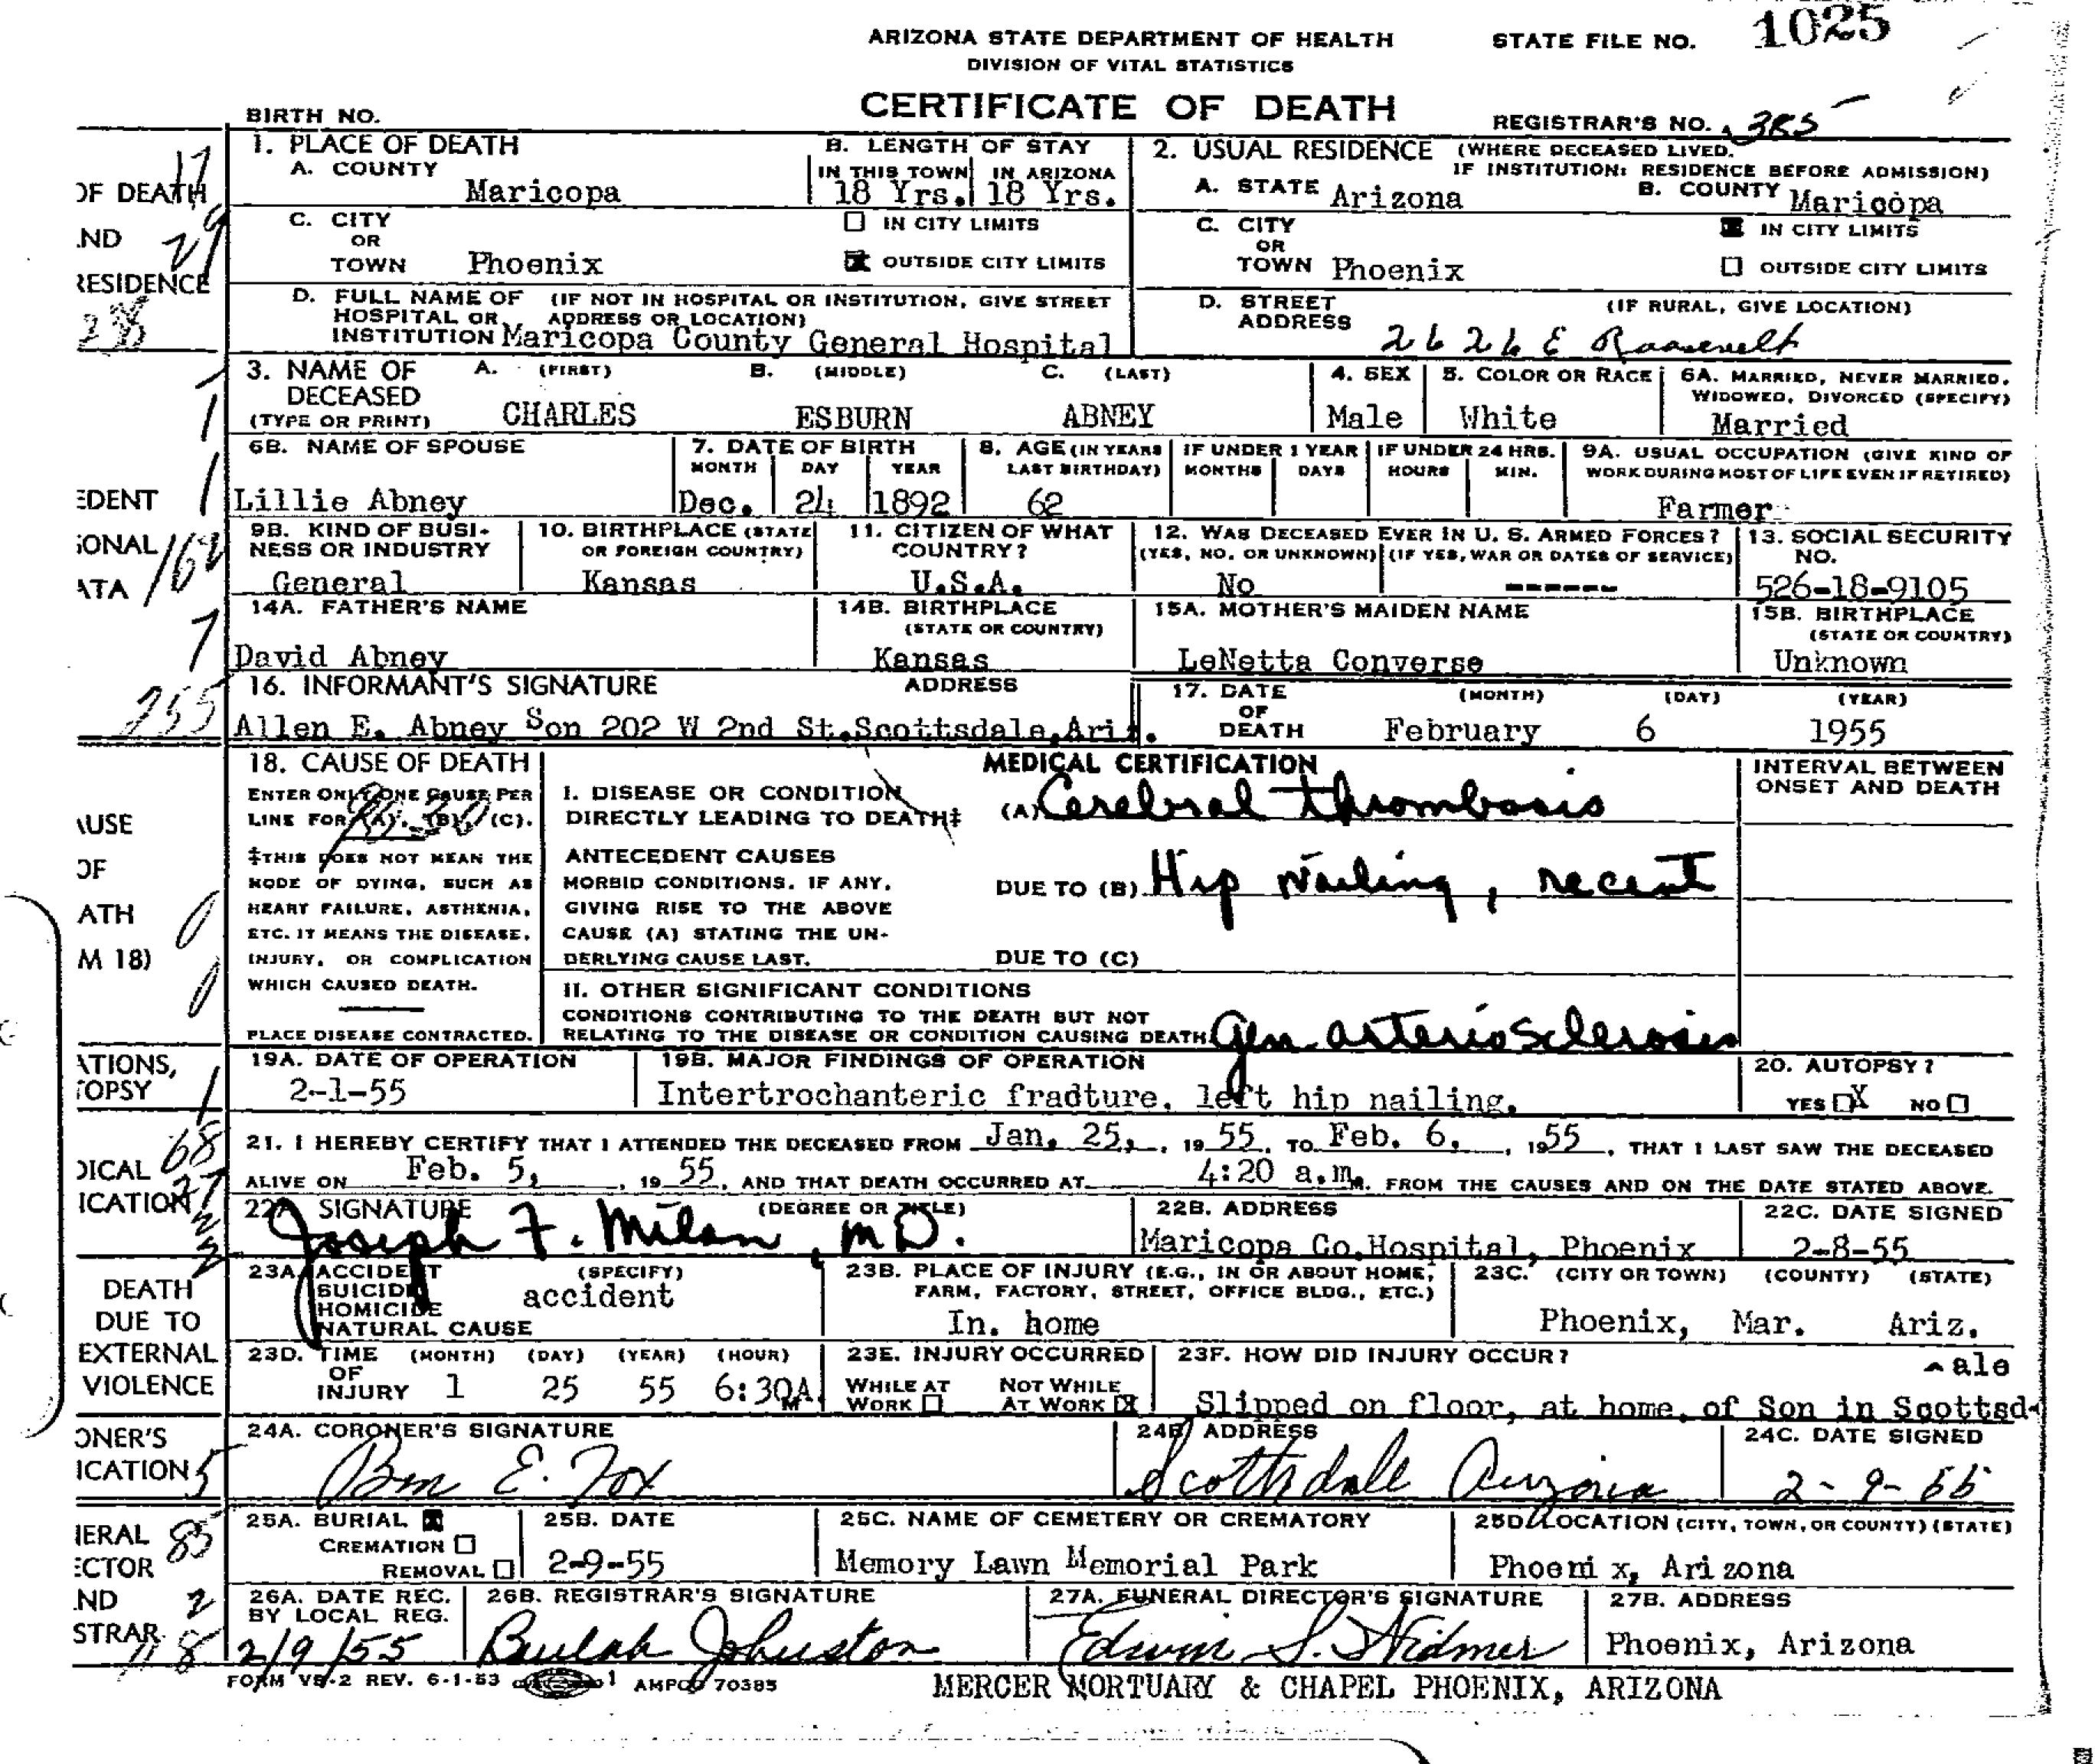 ARIZONA STATE DEPARTMENT OF HEALTH
DIVISION OF VITAL STATISTICS
STATE FILE NO. 1025
CERTIFICATE OF DEATH
BIRTH NO.
REGISTRAR'S NO.
1. PLACE OF DEATH
A. COUNTY Maricopa
B. LENGTH OF STAY
IN THIS TOWN 18 Yrs. IN ARIZONA 18 Yrs.
2. USUAL RESIDENCE (WHERE DECEASED LIVED.
IF INSTITUTION: RESIDENCE BEFORE ADMISSION)
A. STATE Arizona B. COUNTY Maricopa
C. CITY OR TOWN Phoenix
IN CITY LIMITS
OUTSIDE CITY LIMITS
C. CITY OR TOWN Phoenix
IN CITY LIMITS
OUTSIDE CITY LIMITS
D. FULL NAME OF HOSPITAL OR INSTITUTION (IF NOT IN HOSPITAL OR INSTITUTION, GIVE STREET ADDRESS OR LOCATION)
Maricopa County General Hospital
D. STREET ADDRESS (IF RURAL, GIVE LOCATION)
2626 E Roosevelt
3. NAME OF DECEASED (TYPE OR PRINT)
A. (FIRST) CHARLES B. (MIDDLE) ESBURN C. (LAST) ABNEY
4. SEX Male
5. COLOR OR RACE White
6A. MARRIED, NEVER MARRIED, WIDOWED, DIVORCED (SPECIFY) Married
6B. NAME OF SPOUSE Lillie Abney
7. DATE OF BIRTH MONTH Dec. DAY 24 YEAR 1892
8. AGE (IN YEARS LAST BIRTHDAY) 62
IF UNDER 1 YEAR MONTHS DAYS
IF UNDER 24 HRS. HOURS MIN.
9A. USUAL OCCUPATION (GIVE KIND OF WORK DURING MOST OF LIFE EVEN IF RETIRED) Farmer
9B. KIND OF BUSINESS OR INDUSTRY General
10. BIRTHPLACE (STATE OR FOREIGN COUNTRY) Kansas
11. CITIZEN OF WHAT COUNTRY? U.S.A.
12. WAS DECEASED EVER IN U. S. ARMED FORCES?
(YES, NO, OR UNKNOWN) No (IF YES, WAR OR DATES OF SERVICE) ------
13. SOCIAL SECURITY NO. 526-18-9105
14A. FATHER'S NAME David Abney
14B. BIRTHPLACE (STATE OR COUNTRY) Kansas
15A. MOTHER'S MAIDEN NAME LeNetta Converse
15B. BIRTHPLACE (STATE OR COUNTRY) Unknown
16. INFORMANT'S SIGNATURE ADDRESS
Allen E. Abney Son 202 W 2nd St.Scottsdale,Ariz.
17. DATE OF DEATH (MONTH) February (DAY) 6 (YEAR) 1955
18. CAUSE OF DEATH
ENTER ONLY ONE CAUSE PER LINE FOR (A), (B), (C).
‡THIS DOES NOT MEAN THE MODE OF DYING, SUCH AS HEART FAILURE, ASTHENIA, ETC. IT MEANS THE DISEASE, INJURY, OR COMPLICATION WHICH CAUSED DEATH.
PLACE DISEASE CONTRACTED.
MEDICAL CERTIFICATION
INTERVAL BETWEEN ONSET AND DEATH
I. DISEASE OR CONDITION DIRECTLY LEADING TO DEATH‡ (A) Cerebral thrombosis
ANTECEDENT CAUSES
MORBID CONDITIONS, IF ANY, GIVING RISE TO THE ABOVE CAUSE (A) STATING THE UNDERLYING CAUSE LAST.
DUE TO (B) Hip nailing, recent
DUE TO (C)
II. OTHER SIGNIFICANT CONDITIONS
CONDITIONS CONTRIBUTING TO THE DEATH BUT NOT RELATING TO THE DISEASE OR CONDITION CAUSING DEATH Gen. arteriosclerosis
19A. DATE OF OPERATION 2-1-55
19B. MAJOR FINDINGS OF OPERATION
Intertrochanteric fradture, left hip nailing.
20. AUTOPSY? YES X NO
21. I HEREBY CERTIFY THAT I ATTENDED THE DECEASED FROM Jan. 25, , 19 55, TO Feb. 6, , 1955, THAT I LAST SAW THE DECEASED
ALIVE ON Feb. 5, , 19 55, AND THAT DEATH OCCURRED AT 4:20 a.m. FROM THE CAUSES AND ON THE DATE STATED ABOVE.
22A SIGNATURE (DEGREE OR TITLE) Joseph F. Milan, MD.
22B. ADDRESS Maricopa Co.Hospital, Phoenix
22C. DATE SIGNED 2-8-55
23A. ACCIDENT SUICIDE HOMICIDE NATURAL CAUSE (SPECIFY) accident
23B. PLACE OF INJURY (E.G., IN OR ABOUT HOME, FARM, FACTORY, STREET, OFFICE BLDG., ETC.) In. home
23C. (CITY OR TOWN) (COUNTY) (STATE) Phoenix, Mar. Ariz.
23D. TIME OF INJURY (MONTH) 1 (DAY) 25 (YEAR) 55 (HOUR) 6:30A M.
23E. INJURY OCCURRED WHILE AT WORK NOT WHILE AT WORK X
23F. HOW DID INJURY OCCUR?
Slipped on floor, at home, of Son in Scottsd-ale
24A. CORONER'S SIGNATURE E. Fox
24B. ADDRESS Scottsdale Arizona
24C. DATE SIGNED 2-9-55
25A. BURIAL CREMATION REMOVAL
25B. DATE 2-9-55
25C. NAME OF CEMETERY OR CREMATORY Memory Lawn Memorial Park
25D. LOCATION (CITY, TOWN, OR COUNTY) (STATE) Phoenix, Arizona
26A. DATE REC. BY LOCAL REG. 2/9/55
26B. REGISTRAR'S SIGNATURE Beulah Johnston
27A. FUNERAL DIRECTOR'S SIGNATURE Edwin S. Widmer
27B. ADDRESS Phoenix, Arizona
FORM VS-2 REV. 6-1-53 AMPCO 70385
MERCER MORTUARY & CHAPEL PHOENIX, ARIZONA
OF DEATH
RESIDENCE
DEATH
DUE TO
EXTERNAL
VIOLENCE